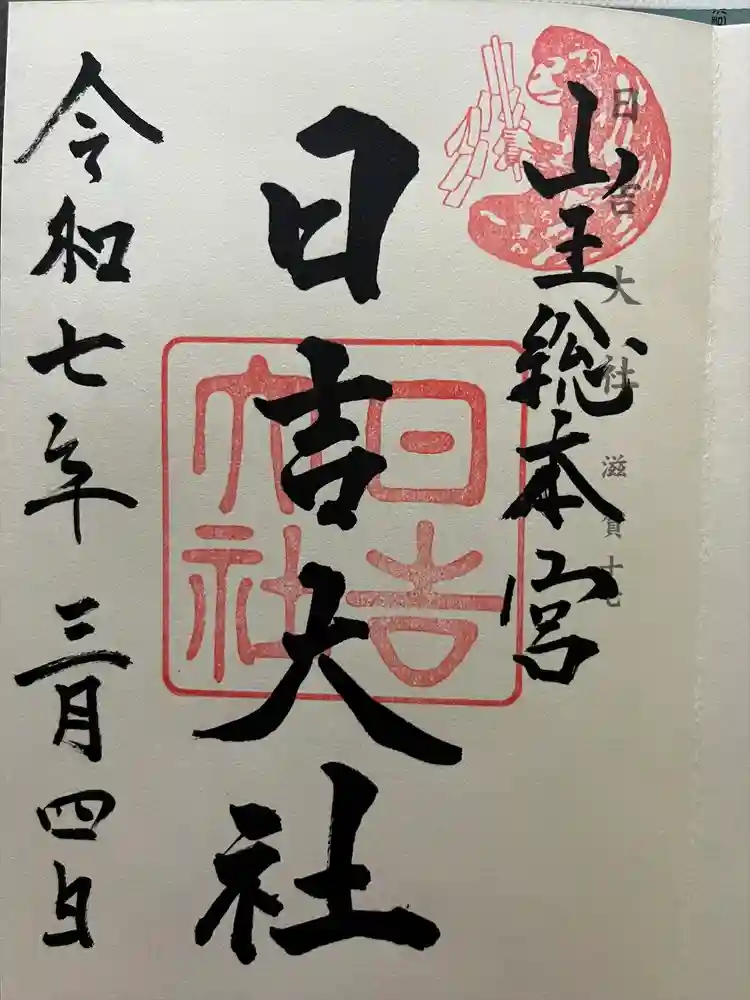 日吉大社 滋賀十七
山王総本宮
日吉大社
日吉大社
令和七年 三月四日